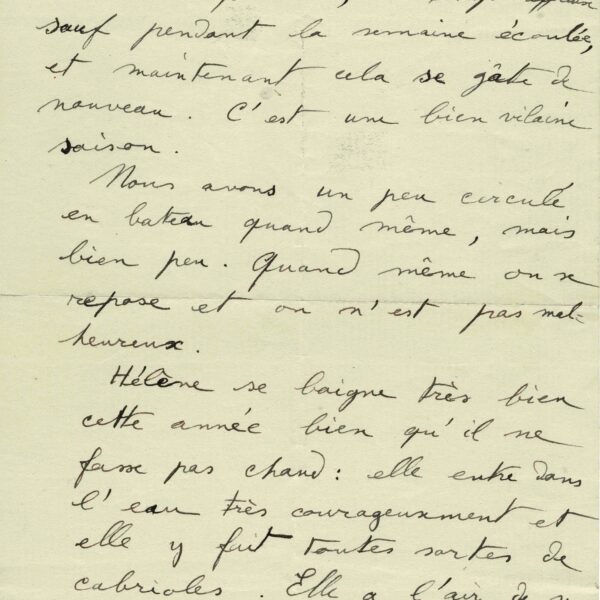 sauf pendant la semaine écoulée,
et maintenant cela se gâte de
nouveau. C'est une bien vilaine
saison.
Nous avons un peu circulé
en bateau quand même, mais
bien peu. Quand même on se
repose et on n'est pas mal=
heureux.
Hélène se baigne très bien
cette année bien qu'il ne
fasse pas chaud : elle entre dans
l'eau très courageusement et
elle y fait toutes sortes de
cabrioles. Elle a l'air de